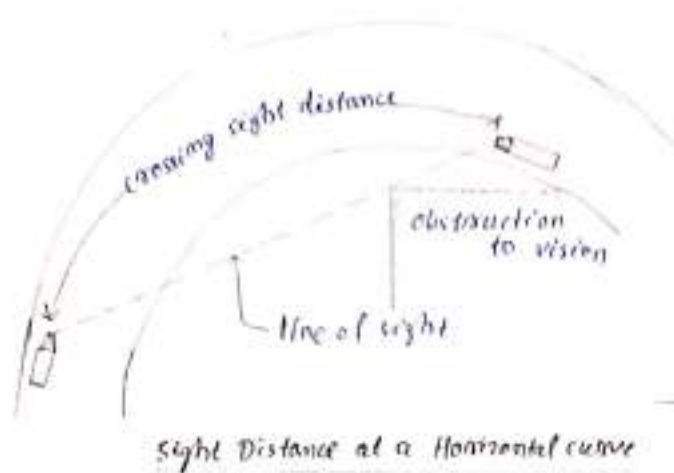 crossing sight distance
obstruction
to vision
line of sight
Sight Distance at a Horizontal curve